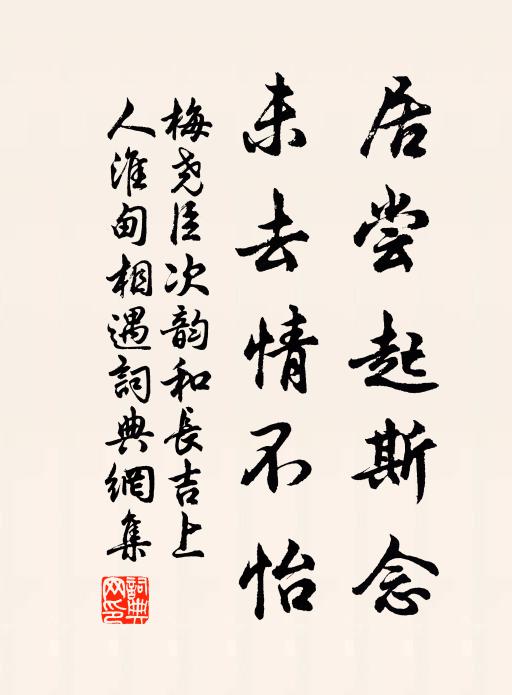 居尝起斯念
未去情不怡
梅尧臣次韵和長吉上
人淮甸相遇詞典網集
詞典
网印